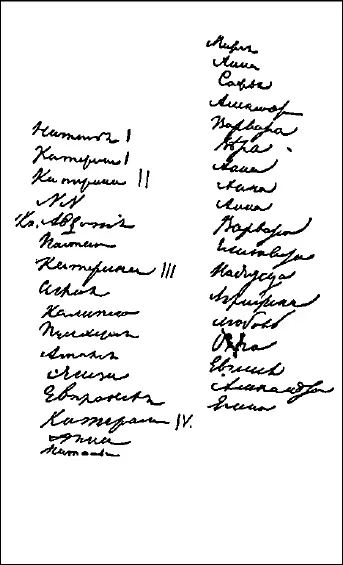 Наталья I
Катерина I
Катерина II
NN
Кн. Авдотья
Настасья
Катерина III
Аглая
Калипсо
Пульхерия
Амалия
Элиза
Евпраксея
Катерина IV.
Анна
Наталья
Мария
Анна
Софья
Александра
Варвара
Вѣра
Анна
Анна
Анна
Варвара
Елизавета
Надежда
Аграфена
Любовь
Ольга
Евгения
Александра
Елена